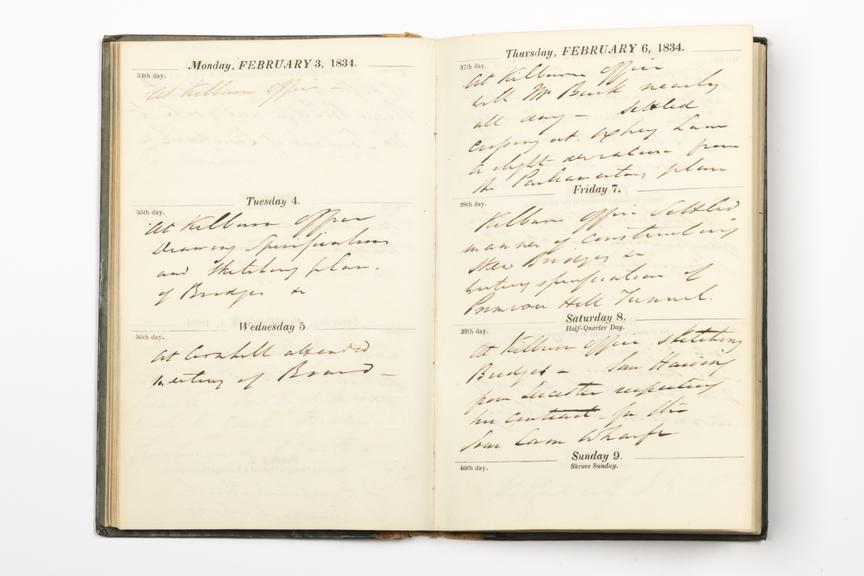 Monday, FEBRUARY 3, 1834.
34th day.
At Kilburn office –
Tuesday 4.
35th day.
At Kilburn office
Drawing Specifications
and Sketching plan.
of Bridges &c
Wednesday 5.
36th day.
At Cornhill attended
meeting of Board –
Thursday, FEBRUARY 6, 1834.
37th day.
At Kilburn office
with Mr Buck nearly
all day – Settled
at Oxhey Lane
a slight deviation from
the Parliamentary plan
Friday 7.
38th day.
Kilburn office Settled
manner of constructing
Skew Bridges &c
writing specification of
Primrose Hill Tunnel.
Saturday 8.
Half-Quarter Day.
39th day.
At Kilburn office sketching
Bridges – Saw
from Leicester respecting
his contract for the
Wharfe
Sunday 9.
Shrove Sunday.
40th day.